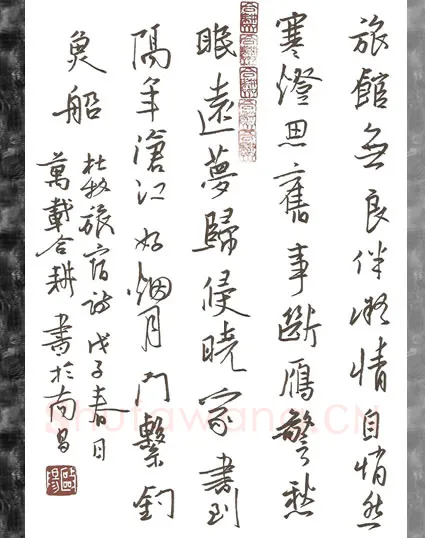 旅館無良伴凝情自悄然
寒燈思舊事斷鴈警愁
眠遠夢歸侵曉家書到
隔年滄江好烟月門繫釣
魚船
杜牧旅宿詩戊子春月
萬載合耕書於南昌
Shufawang.CN